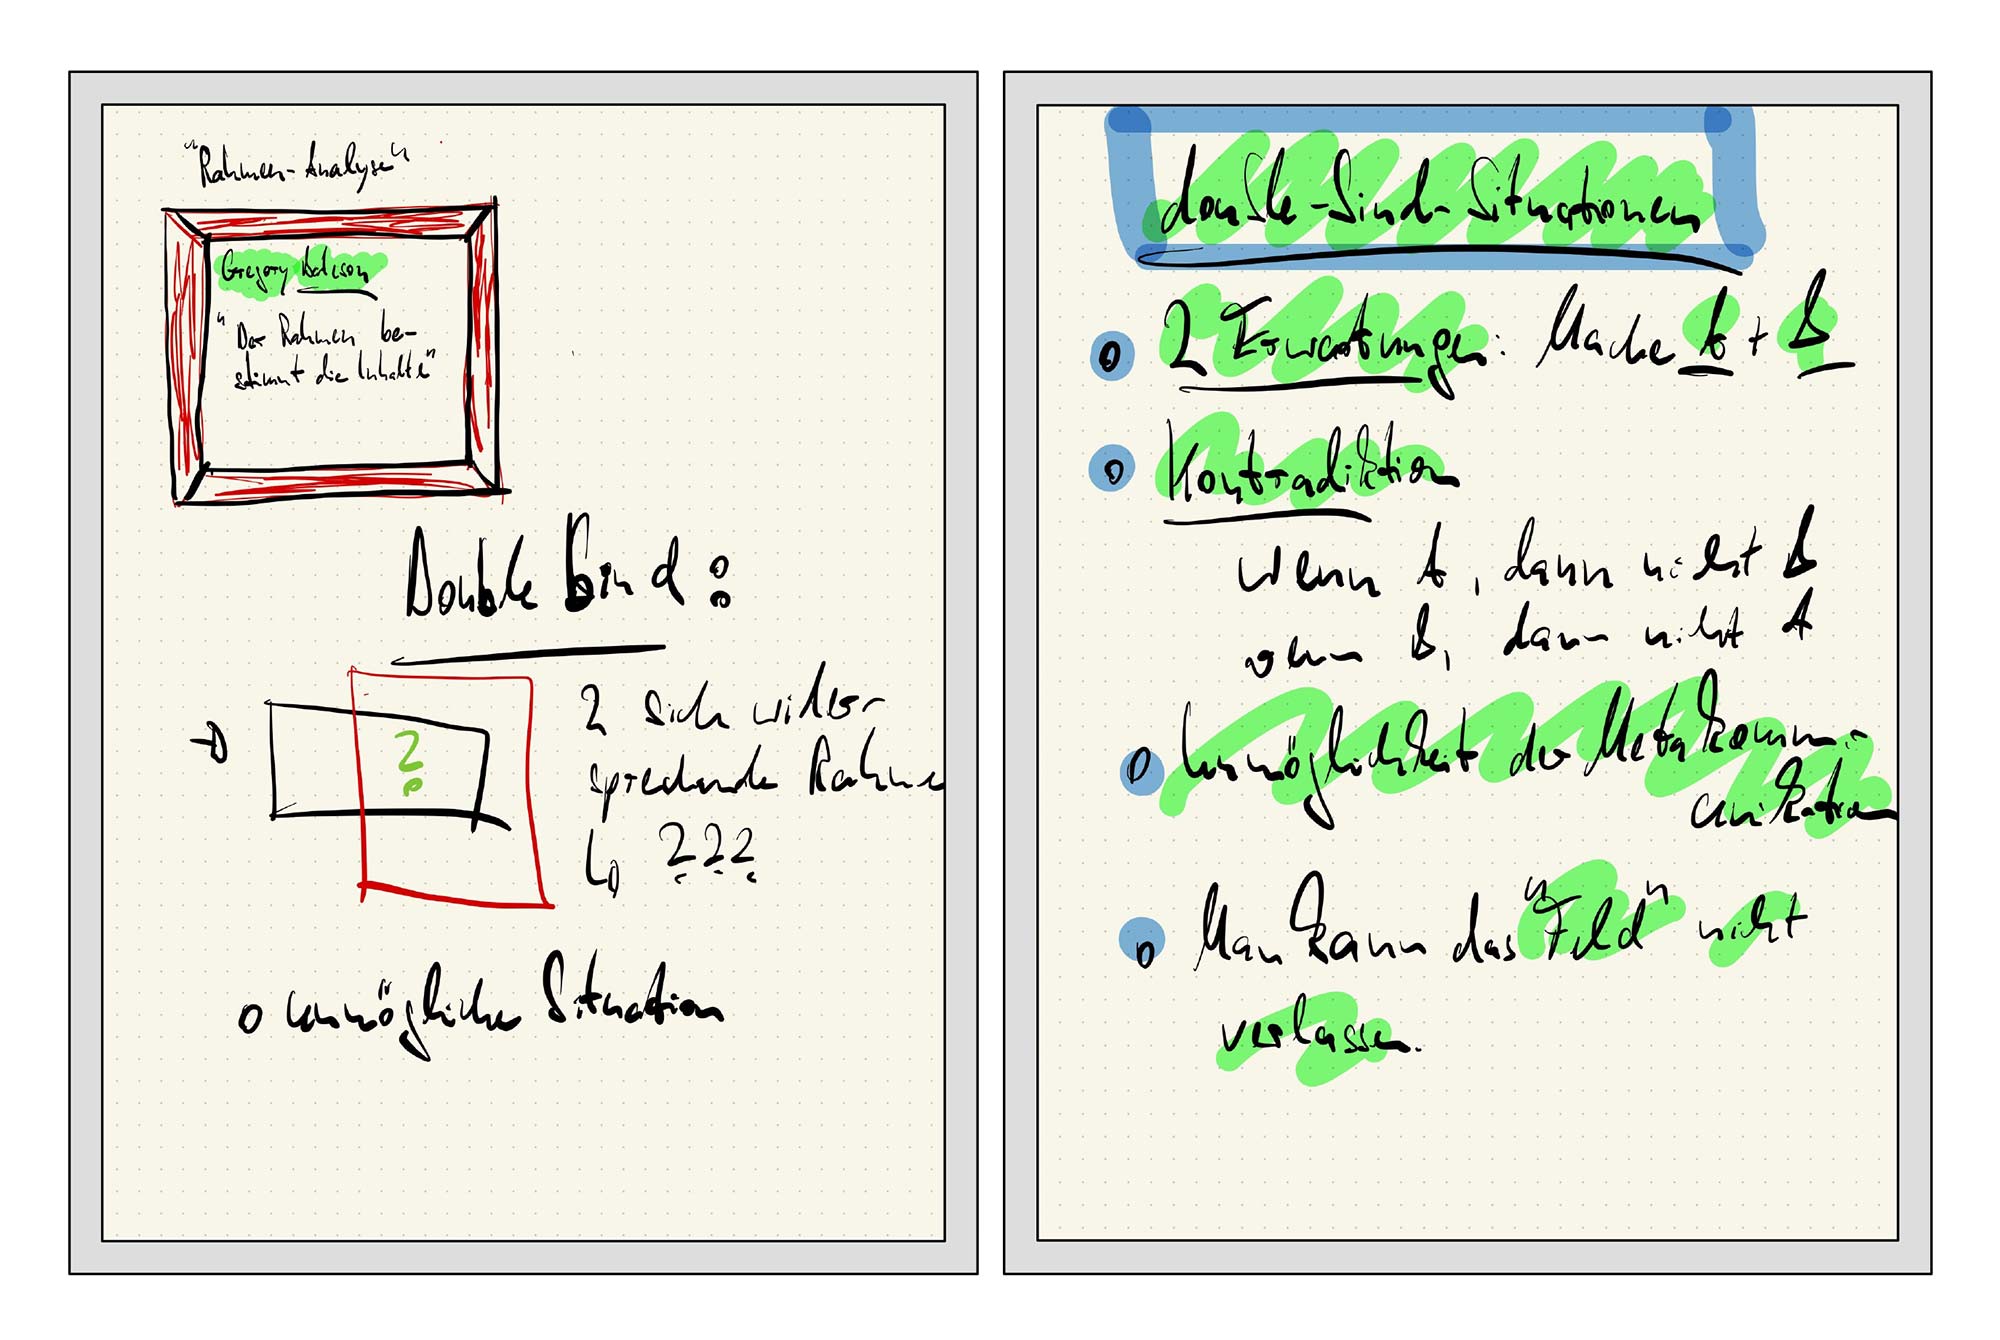 "Rahmen-Analyse"
Gregory Bateson
"Der Rahmen be-
stimmt die Inhalte"
Double bind:
?
2 sich wider-
sprechende Rahmen
???
unmögliche Situation
double-bind-Situationen
2 Erwartungen: Mache A + B
Kontradiktion
wenn A, dann nicht B
wenn B, dann nicht A
Unmöglichkeit der Metakomm-
unikation
Man kann das "Feld" nicht
verlassen.